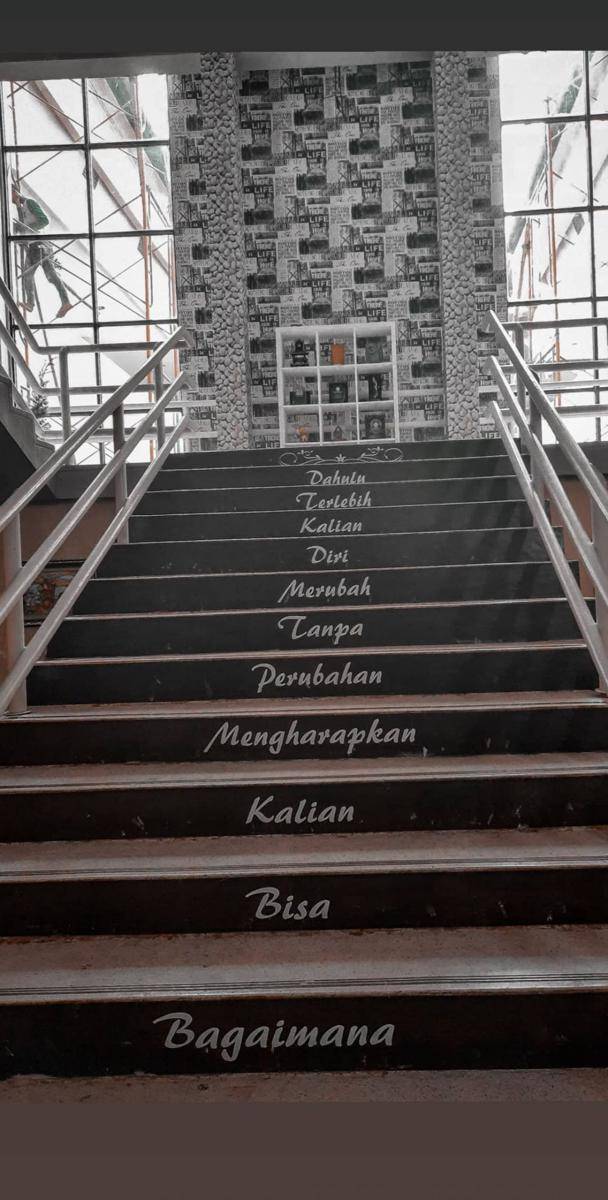 Bagaimana
Bisa
Kalian
Mengharapkan
Perubahan
Tanpa
Merubah
Diri
Kalian
Terlebih
Dahulu
LIFE